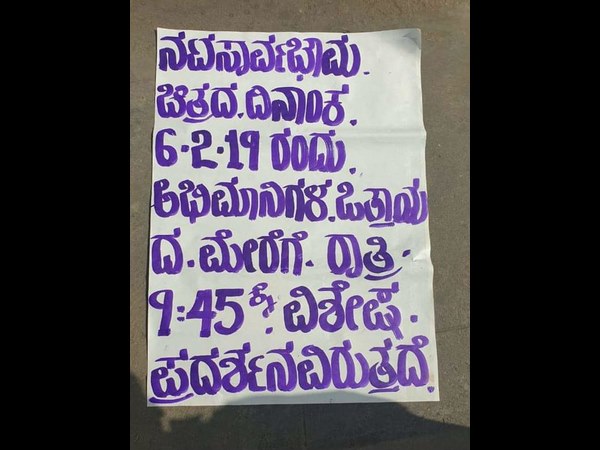 ನಟಸಾರ್ವಭೌಮ.
ಚಿತ್ರದ. ದಿನಾಂಕ.
6.2.19 ರಂದು.
ಅಭಿಮಾನಿಗಳ. ಒತ್ತಾಯ
ದ. ಮೇರೆಗೆ. ರಾತ್ರಿ.
9:45ಕ್ಕೆ. ವಿಶೇಷ.
ಪ್ರದರ್ಶನವಿರುತ್ತದೆ.